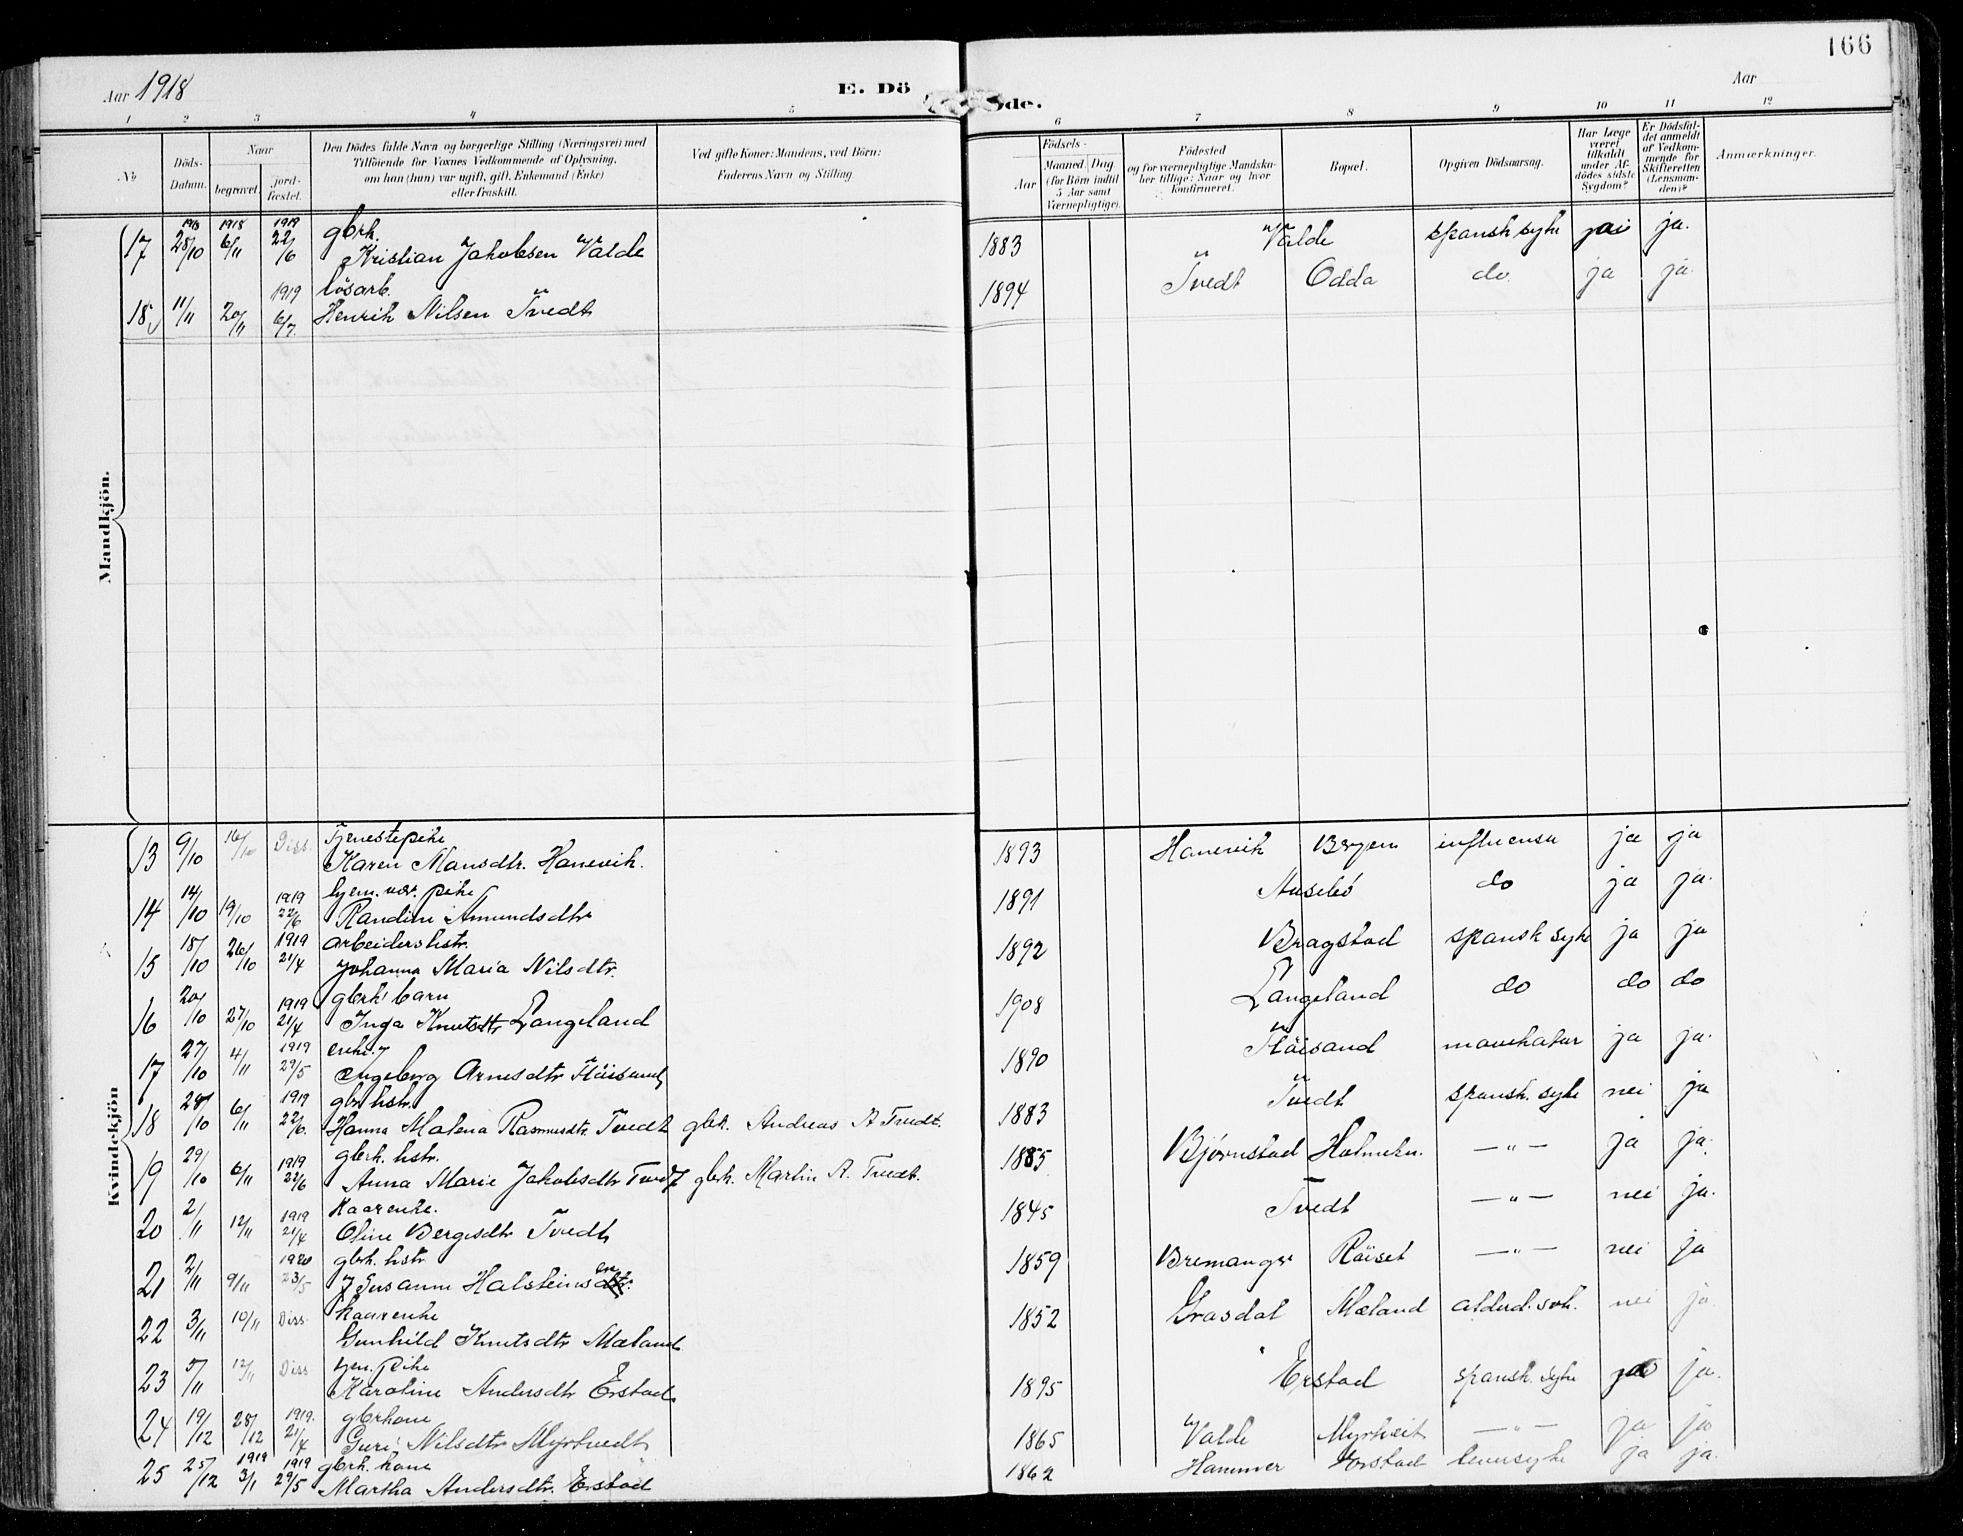 166
Aar 1918
E. Dö
öde.
Aar
1 2 3 4 5 6 7 8 9 10 11 12
№
Döds-Datum.
Naar
begravet.
jordfæstet.
Den Dödes fulde Navn og borgerlige Stilling (Næringsvei) med
Tilföiende for Voxnes Vedkommende af Oplysning,
om han (hun) var ugift, gift, Enkemand (Enke)
eller fraskilt.
Ved gifte Koner: Mandens, ved Börn:
Faderens Navn og Stilling
Födsels-
Aar
Maaned Dag
(for Börn indtil
5 Aar samt
Værnepligtige).
Födested
og for værnepligtige Mandskaber
tillige: Naar og hvor
konfirmeret.
Bopæl.
Opgiven Dödsaarsag.
Har Læge
været
tilkaldt
under Afdödes
sidste
Sygdom?
Er Dödsfaldet
anmeldt
af Vedkommende
for
Skifteretten
(Lensmanden)?
Anmærkninger.
Mandkjön.
17 1918 28/10 1918 6/11 1919 22/6 gbrk. Kristian Jakobsen Valde 1883 Valde spansk syke ja ja.
18 11/11 20/11 1919 6/7. lösarb. Henrik Nilsen Tvedt 1894 Tvedt Odda do ja ja
Kvindekjön
13 9/10 16/10 Diss Tjenestepike
Karen Mansdtr. Hanevik. 1893 Hanevik Bergen influensa ja ja
14 14/10 19/10 1919 22/6 hjem. vær. pike
Randine Amundsdtr 1891 do ja ja.
15 18/10 26/10 1919 21/4 arbeiderhstr.
Johanna Maria Nilsdtr. 1892 Bragstad spansk syke ja ja
16 20/10 27/10 1919 21/4 gbrk barn
Inga Knutsdtr Langeland 1908 Langeland do do do
17 27/10 4/11 1919 29/5 enke.
Ingeborg Arnesdtr Flöisand 1890 Flöisand mavekatar ja ja.
18 28/10 6/11 1919 22/6. gbr hstr.
Hanna Malena Rasmusdtr. Tvedt gbrk. Andreas A Tvedt. 1883 Tvedt spansk. syke nei ja
19 29/10 6/11 1919 22/6 gbrk. hstr.
Anna Marie Jakobsdtr Tvedt gbrk. Martin A. Tvedt. 1885 Bjørnstad — " — ja ja.
20 2/11 12/11 1919 21/4 Kaarenke.
Oline Bergesdtr Tvedt 1845 Tvedt — " — nei ja.
21 2/11 9/11 1920 23/5 gbrk. hstr
J Susanne Halsteinsen 1859 Bremanger Röiset — " — nei ja
22 3/11 10/11 Diss kaarenke
Gunhild Knutsdtr Mæland 1852 Grasdal Mæland alderd. svk. nei ja
23 5/11 12/11 Diss tjen. pike
Karoline Andersdtr Erstad 1895 Erstad spansk. syke ja ja.
24 19/12 28/12 1919. 21/4 gbrkone
Guri Nilsdtr Myrtvedt 1865 Valde — " — ja ja
25 25/12 1919 3/1 1919 29/5 gbrk. kone
Martha Andersdtr. Erstad 1862 Hammer Erstad ja ja.